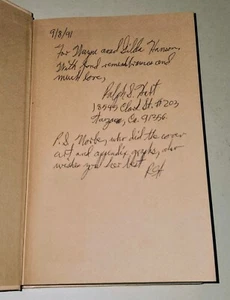 9/8/91
For Wayne and Gilda Hanson,
With fond remembrances and
much love,
Ralph S. Hest
18545 Clark St. #203
Tarzana, Ca. 91356
P.S. who did the cover
art and appendix graphs, also
wishes you best
R.H.